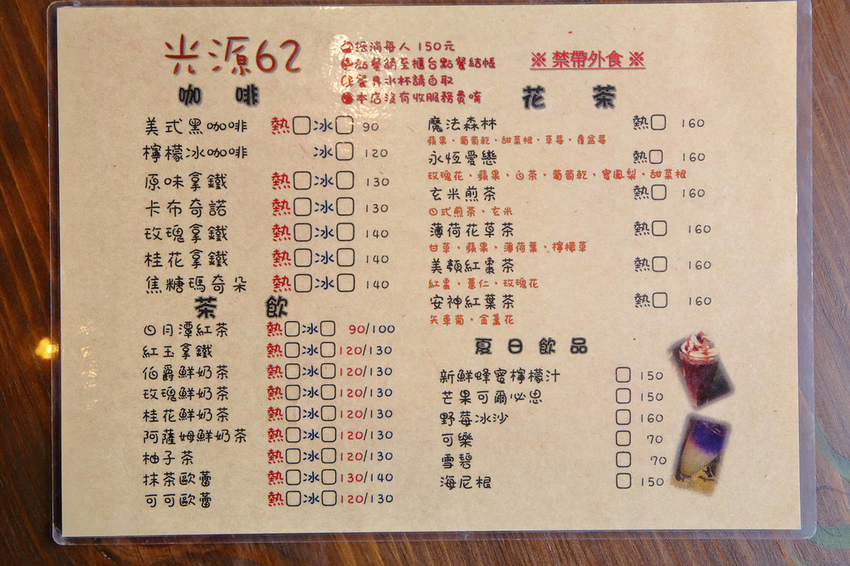 光源62
低消每人 150元
點餐請至櫃台點餐結帳
餐具水杯請自取
本店沒有收服務費唷
※ 禁帶外食 ※
咖啡
美式黑咖啡 熱□冰□ 90
檸檬冰咖啡 冰□ 120
原味拿鐵 熱□冰□ 130
卡布奇諾 熱□冰□ 130
玫瑰拿鐵 熱□冰□ 140
桂花拿鐵 熱□冰□ 140
焦糖瑪奇朵 熱□冰□ 140
茶飲
日月潭紅茶 熱□冰□ 90/100
紅玉拿鐵 熱□冰□ 120/130
伯爵鮮奶茶 熱□冰□ 120/130
玫瑰鮮奶茶 熱□冰□ 120/130
桂花鮮奶茶 熱□冰□ 120/130
阿薩姆鮮奶茶 熱□冰□ 120/130
柚子茶 熱□冰□ 120/130
抹茶歐蕾 熱□冰□ 130/140
可可歐蕾 熱□冰□ 120/130
花茶
魔法森林 熱□ 160
蘋果、葡萄乾、甜菜根、草莓、覆盆莓
永恆愛戀 熱□ 160
玫瑰花、蘋果、白茶、葡萄乾、蜜鳳梨、甜菜根
玄米煎茶 熱□ 160
日式煎茶、玄米
薄荷花草茶 熱□ 160
甘草、蘋果、薄荷葉、檸檬草
美顏紅棗茶 熱□ 160
紅棗、薏仁、玫瑰花
安神紅葉茶 熱□ 160
矢車菊、金盞花
夏日飲品
新鮮蜂蜜檸檬汁 □ 150
芒果可爾必思 □ 150
野莓冰沙 □ 160
可樂 □ 70
雪碧 □ 70
海尼根 □ 150